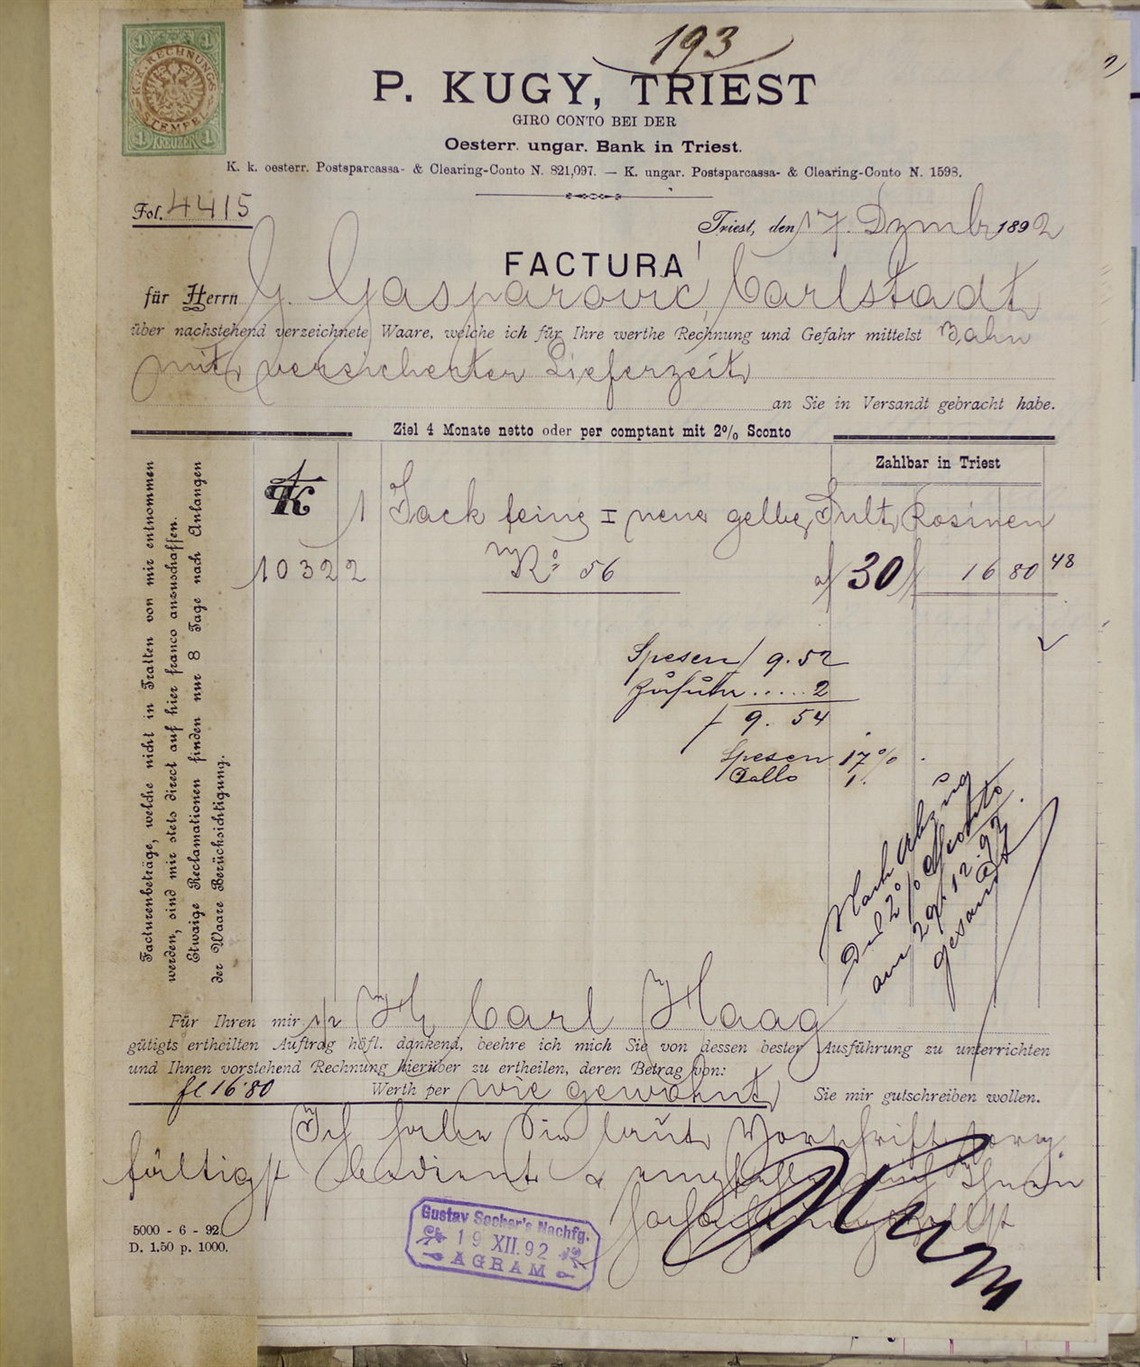 193
K.K. RECHNUNGS
STEMPEL
1 KREUZER 1
P. KUGY, TRIEST
GIRO CONTO BEI DER
Oesterr. ungar. Bank in Triest.
K. k. oesterr. Postsparcassa- & Clearing-Conto N. 821,097. — K. ungar. Postsparcassa- & Clearing-Conto N. 1598.
Fol. 4415
Triest, den 17. Dzmbr 1892
FACTURA
für Herrn G. Gasparovic, Carlstadt
über nachstehend verzeichnete Waare, welche ich für Ihre werthe Rechnung und Gefahr mittelst Bahn
mit versicherter Lieferzeit
an Sie in Versandt gebracht habe.
Ziel 4 Monate netto oder per comptant mit 2% Sconto
Zahlbar in Triest
Facturenbeträge, welche nicht in Tratten von mir entnommen
werden, sind mir stets direct auf hier franco anzuschaffen.
Etwaige Reclamationen finden nur 8 Tage nach Anlangen
der Waare Berücksichtigung.
TK 1 Sack feine I neue gelbe Sult. Rosinen
10322 Ko 56 a f 30 f 16 80 48
Spesen f 9.52
Zufuhr ..... 2
f 9. 54
Spesen 17%
Dallo 1.
Nach Abzug
2% Sconto
am 29.12.92
gesandt
Für Ihren mir d/ H. Carl Haag
gütigts ertheilten Auftrag höfl. dankend, beehre ich mich Sie von dessen bester Ausführung zu unterrichten
und Ihnen vorstehend Rechnung hierüber zu ertheilen, deren Betrag von:
fl 16·80 Werth per wie gewohnt Sie mir gutschreiben wollen.
Ich habe Sie laut Vorschrift sorg
fältigst bedient & empfehle mich Ihnen
hochachtungsvollst
Gustav Socher's Nachfg.
19 XII. 92
AGRAM
5000 - 6 - 92.
D. 1.50 p. 1000.